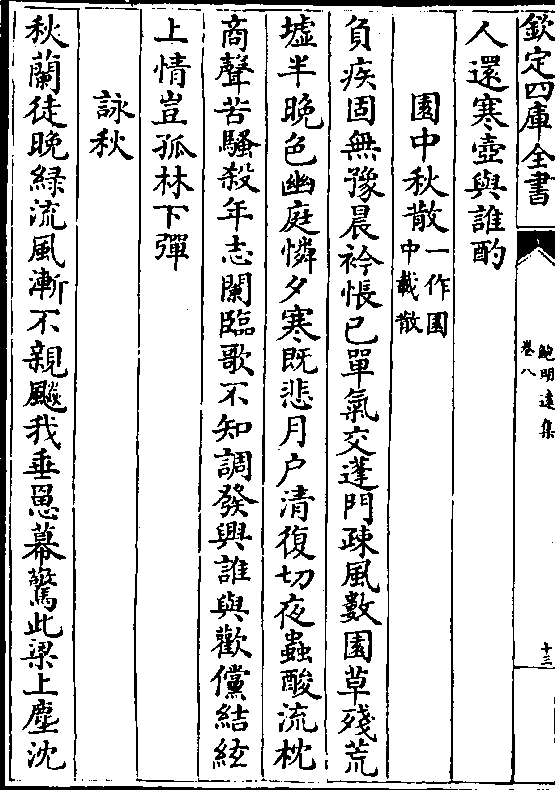 欽定四庫全書
鮑明遠集
卷八
十三
人還寒壺與誰酌
園中秋散一作園中載散
負疾固無豫晨衿悵已單氣交蓬門疎風數園草殘荒
墟半晚色幽庭憐夕寒既悲月户清復切夜蟲酸流枕
商聲苦騷殺年志闌臨歌不知調發興誰與歡儻結絃
上情豈孤林下彈
詠秋
秋蘭徒晚綠流風漸不親飈我垂思幕驚此梁上塵沈